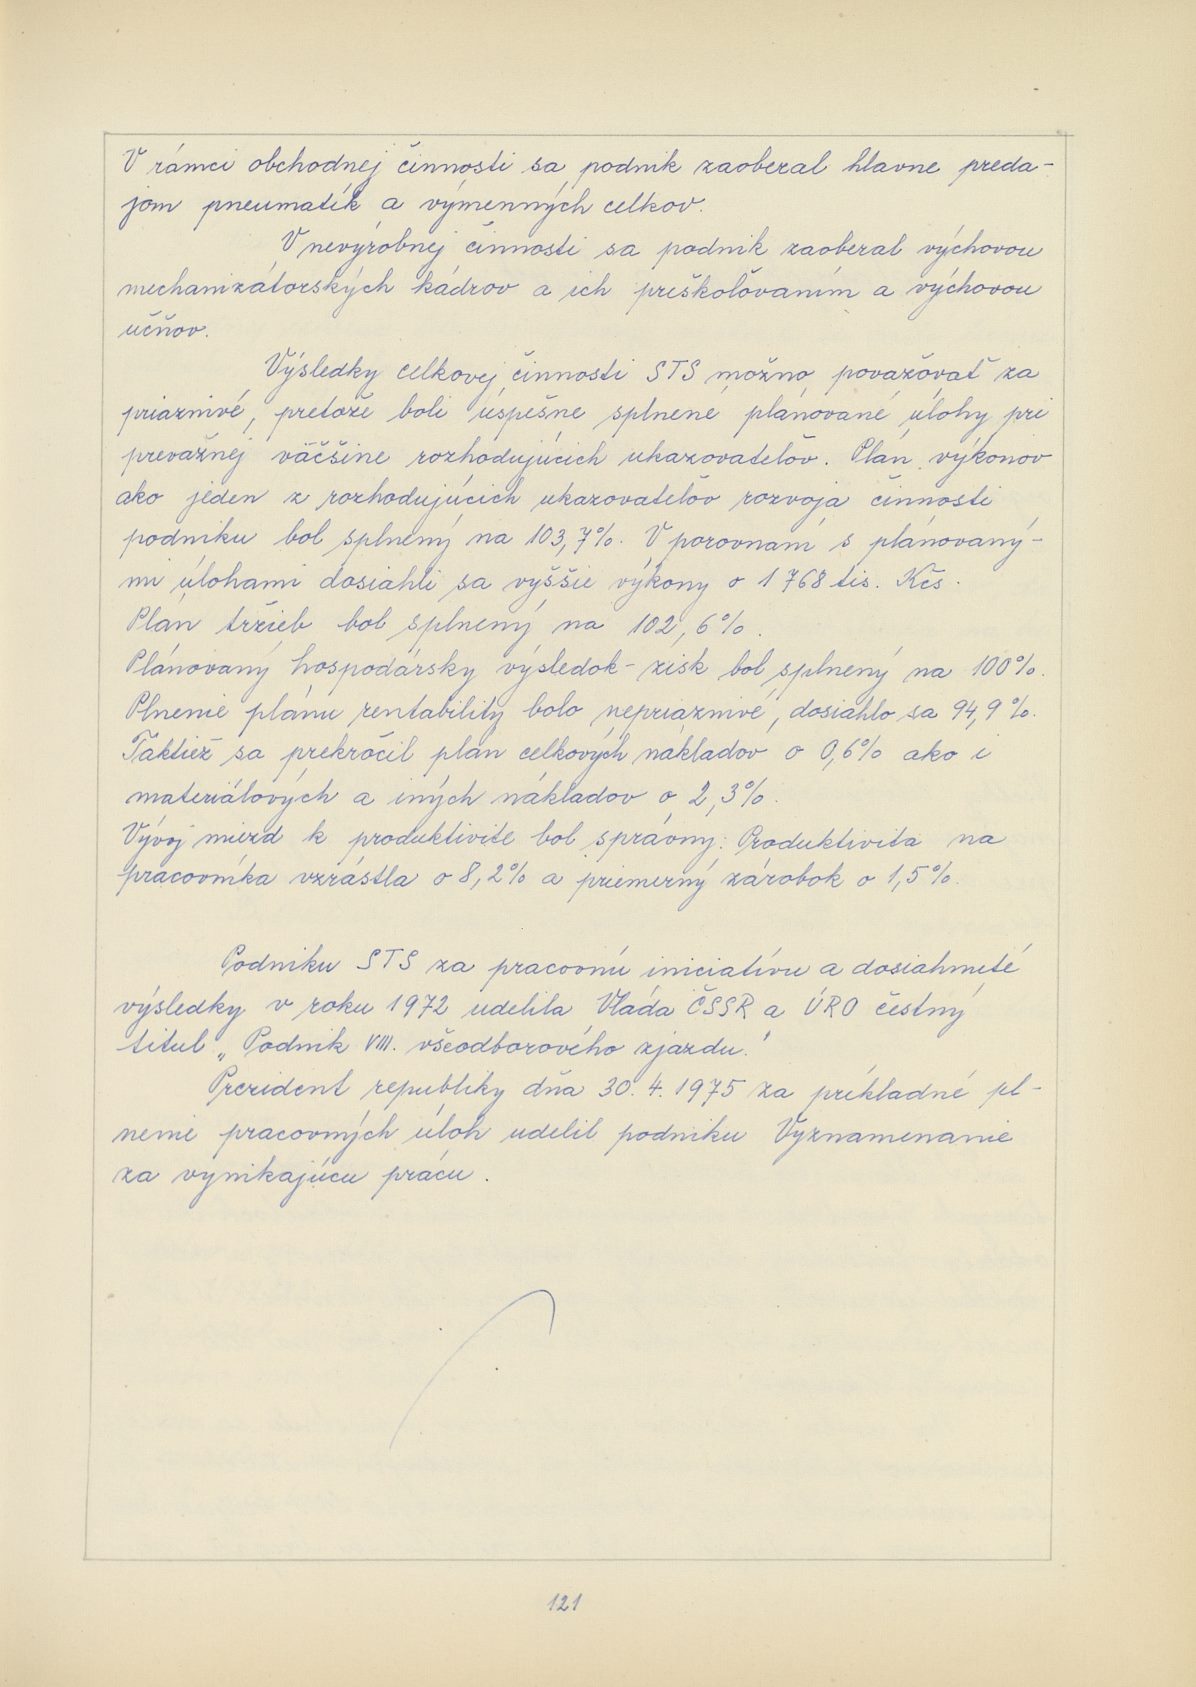 V rámci obchodnej činnosti sa podnik zaoberal hlavne preda-
jom pneumatík a výmenných celkov.
V nevýrobnej činnosti sa podnik zaoberal výchovou
mechanizátorských kádrov a ich preškoľovaním a výchovou
učňov.
Výsledky celkovej činnosti STS možno považovať za
priaznivé, pretože boli úspešne splnené plánované úlohy pri
prevažnej väčšine rozhodujúcich ukazovateľov. Plán výkonov
ako jeden z rozhodujúcich ukazovateľov rozvoja činnosti
podniku bol splnený na 103,7%. V porovnaní s plánovaný-
mi úlohami dosiahli sa vyššie výkony o 1 768 tis. Kčs.
Plán tržieb bol splnený na 102,6%.
Plánovaný hospodársky výsledok - zisk bol splnený na 100%.
Plnenie plánu rentability bolo nepriaznivé, dosiahlo sa 94,9%.
Taktiež sa prekročil plán celkových nákladov o 0,6% ako i
materiálových a iných nákladov o 2,3%.
Vývoj miezd k produktivite bol správny. Produktivita na
pracovníka vzrástla o 8,2% a priemerný zárobok o 1,5%.
Podniku STS za pracovnú iniciatívu a dosiahnuté
výsledky v roku 1972 udelila Vláda ČSSR a ÚRO čestný
titul „Podnik VIII. všeodborového zjazdu."
Prezident republiky dňa 30. 4. 1975 za príkladné pl-
nenie pracovných úloh udelil podniku Vyznamenanie
za vynikajúcu prácu.
121